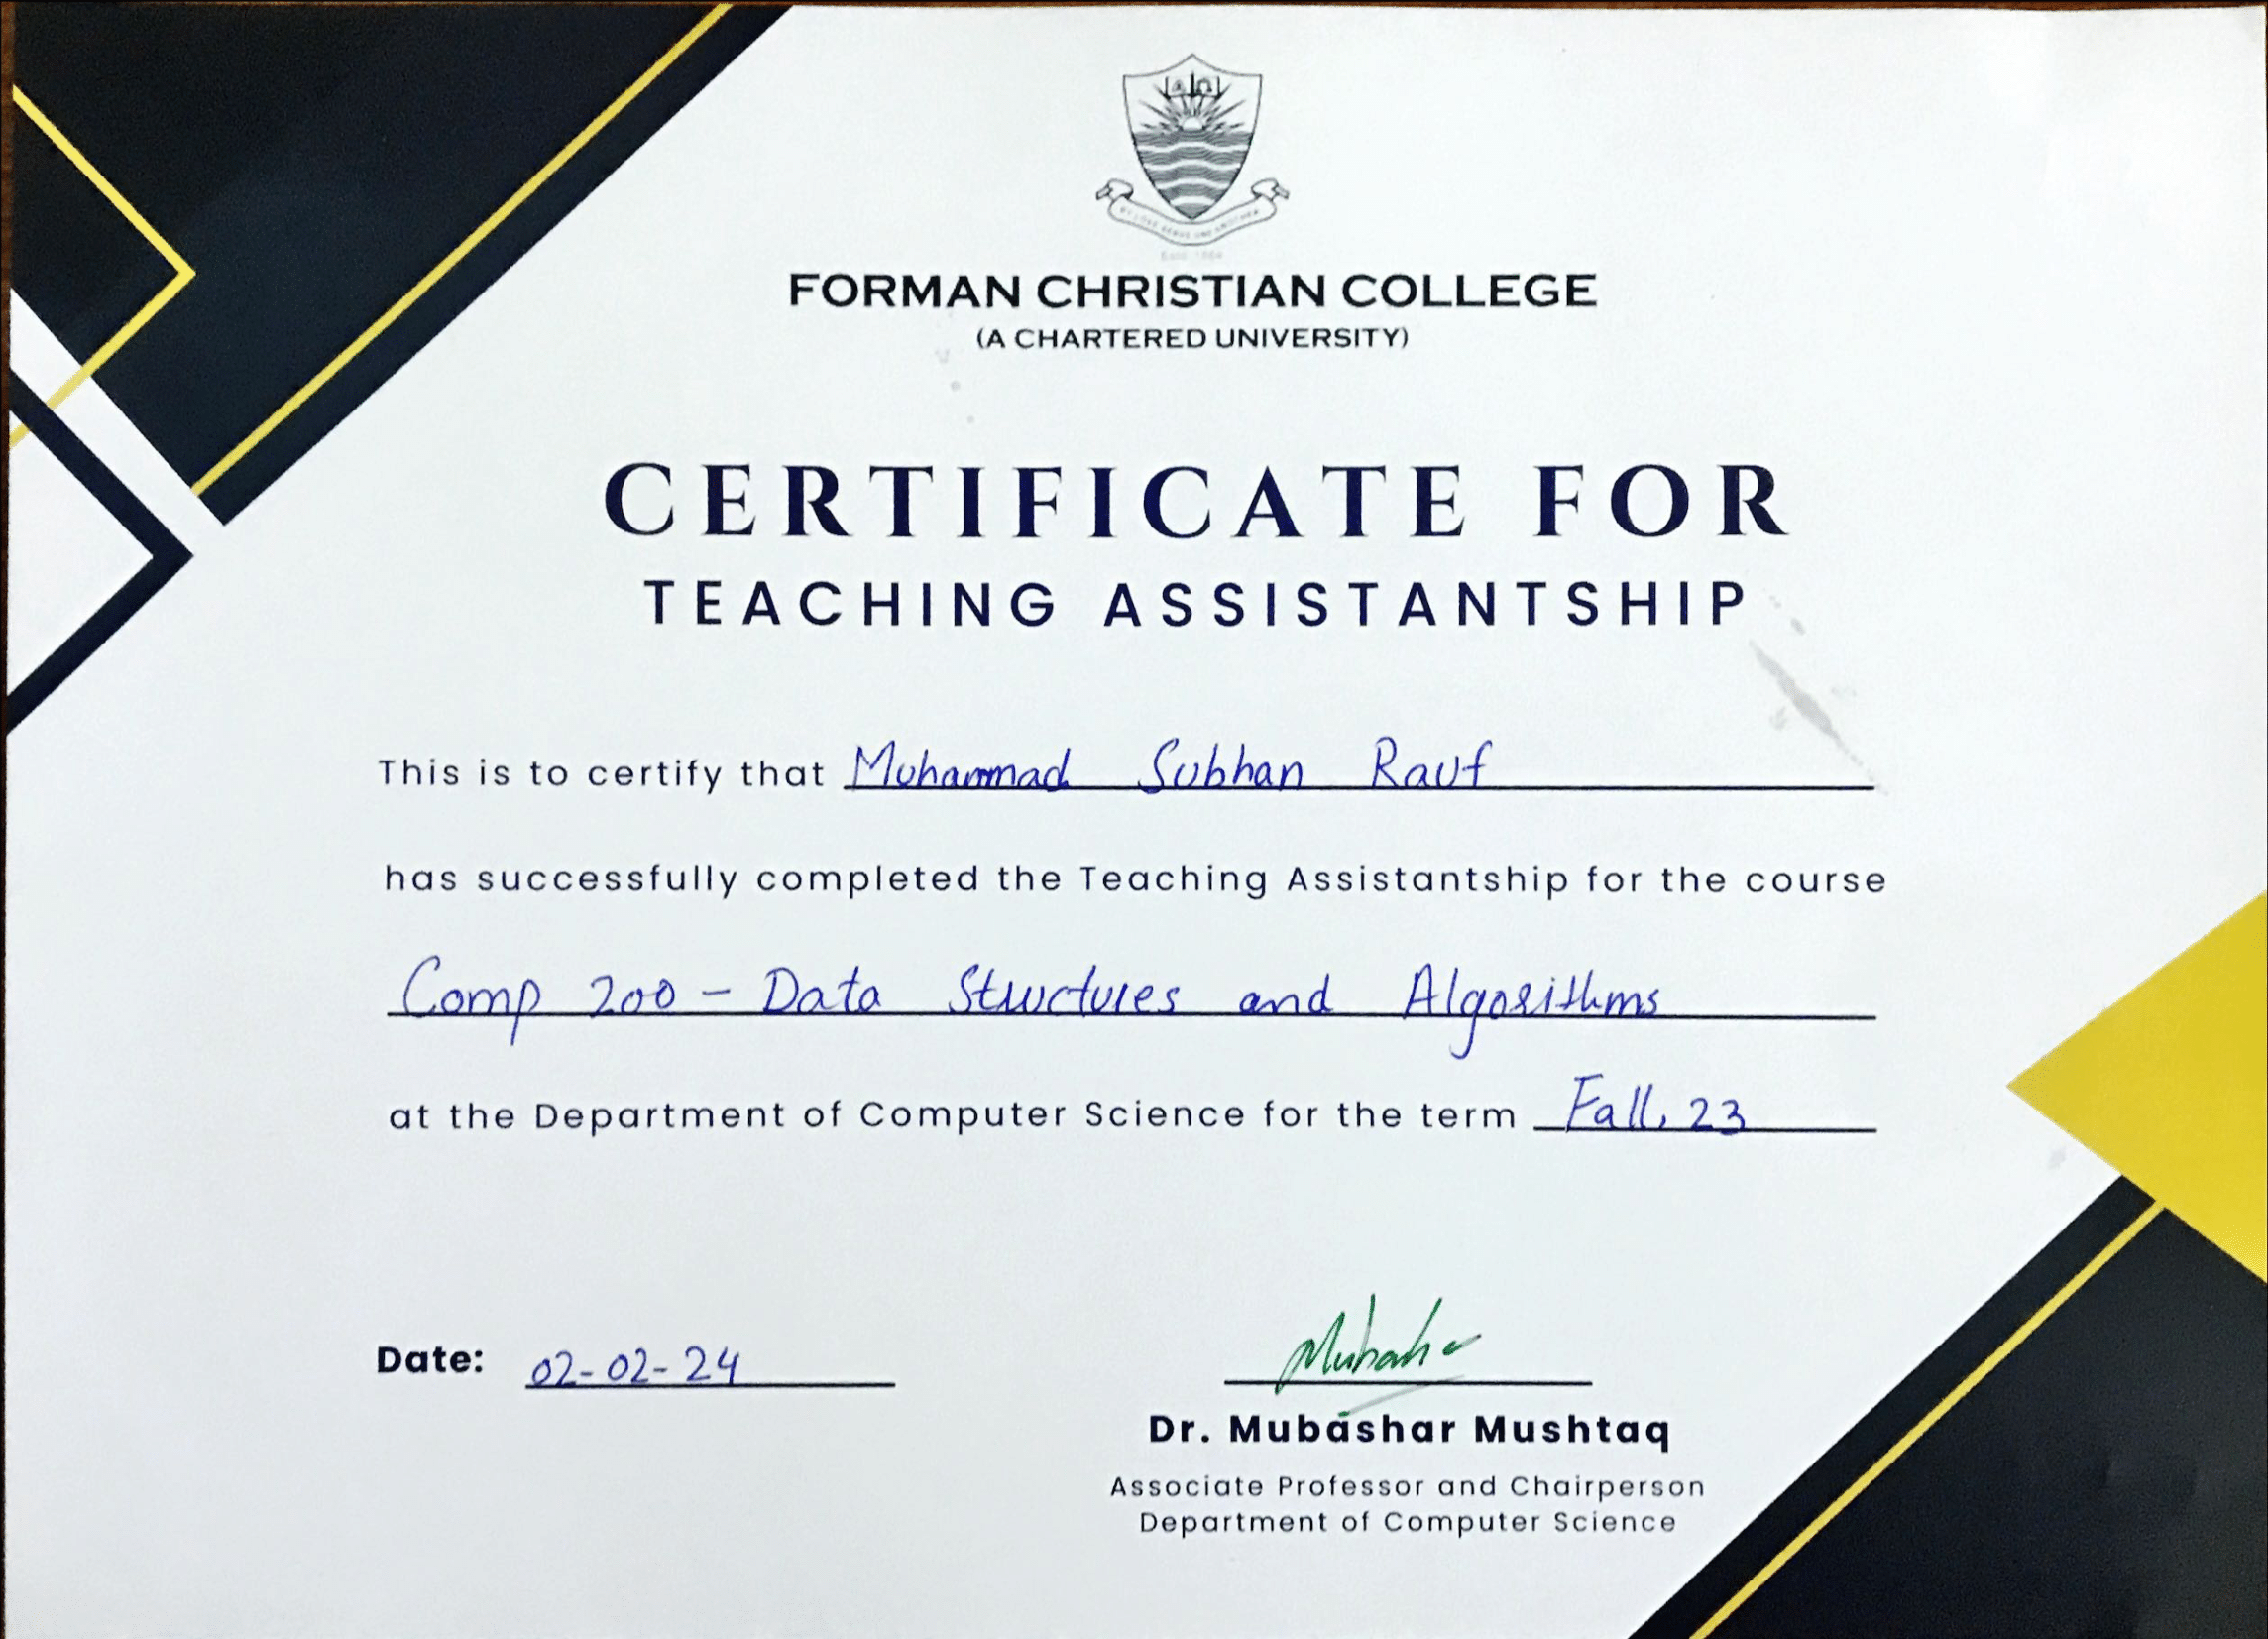 FORMAN CHRISTIAN COLLEGE
(A CHARTERED UNIVERSITY)
CERTIFICATE FOR
TEACHING ASSISTANTSHIP
This is to certify that Muhammad Subhan Rauf
has successfully completed the Teaching Assistantship for the course
Comp 200 - Data Structures and Algorithms
at the Department of Computer Science for the term Fall, 23
Date: 02-02-24
Dr. Mubashar Mushtaq
Associate Professor and Chairperson
Department of Computer Science